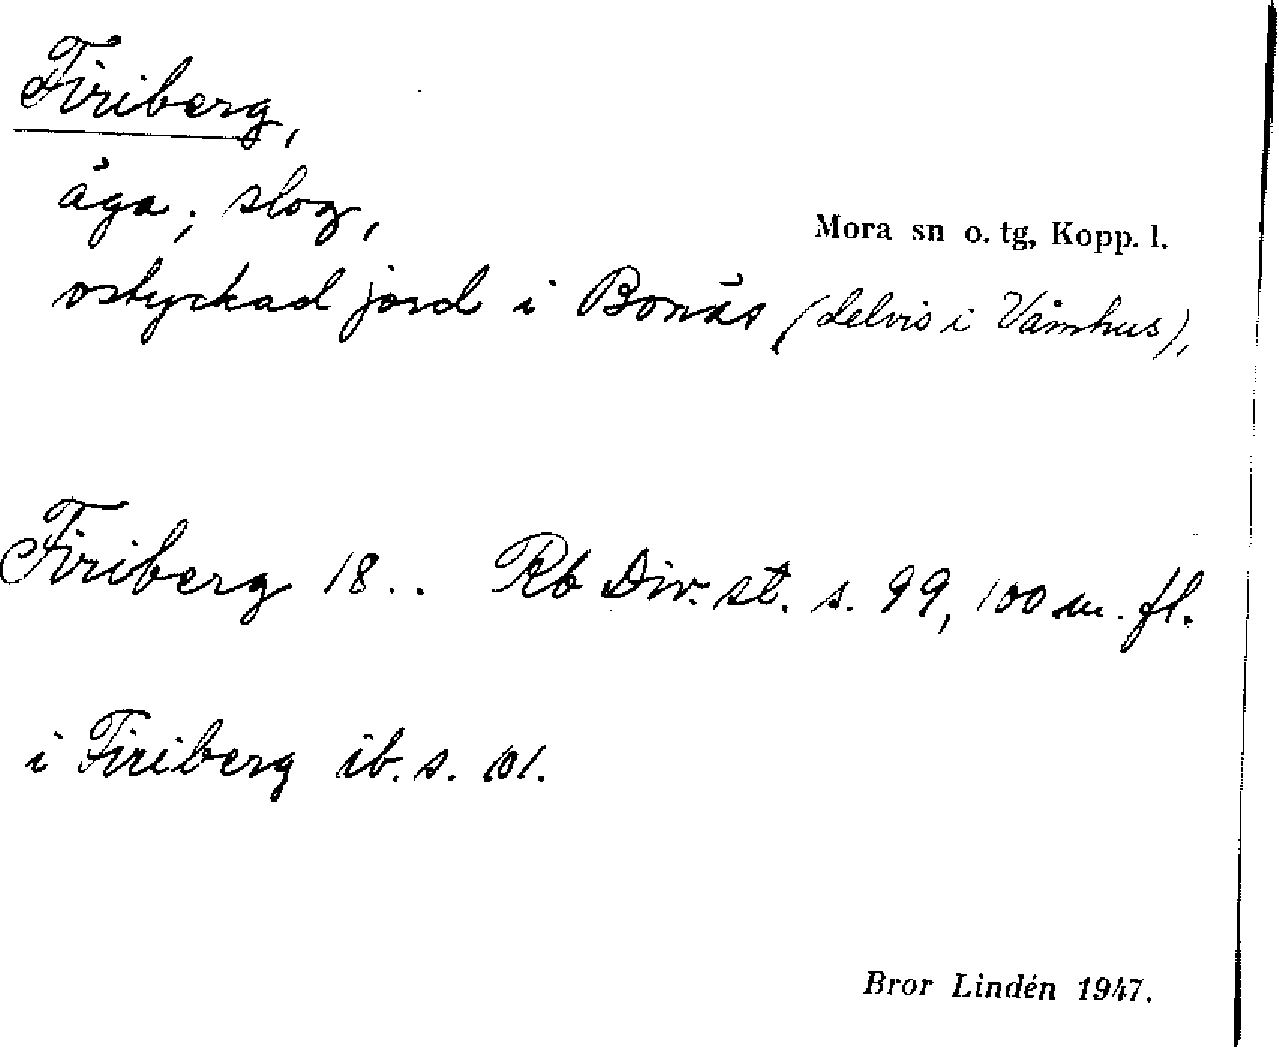 Firiberg,
äga; slog,
Mora sn o. tg, Kopp. l.
ostyckad jord i Bonäs (delvis i Våmhus),
Firiberg 18.. Rb Div. st. s. 99, 100 m. fl.
i Firiberg ib. s. 101.
Bror Lindén 1947.